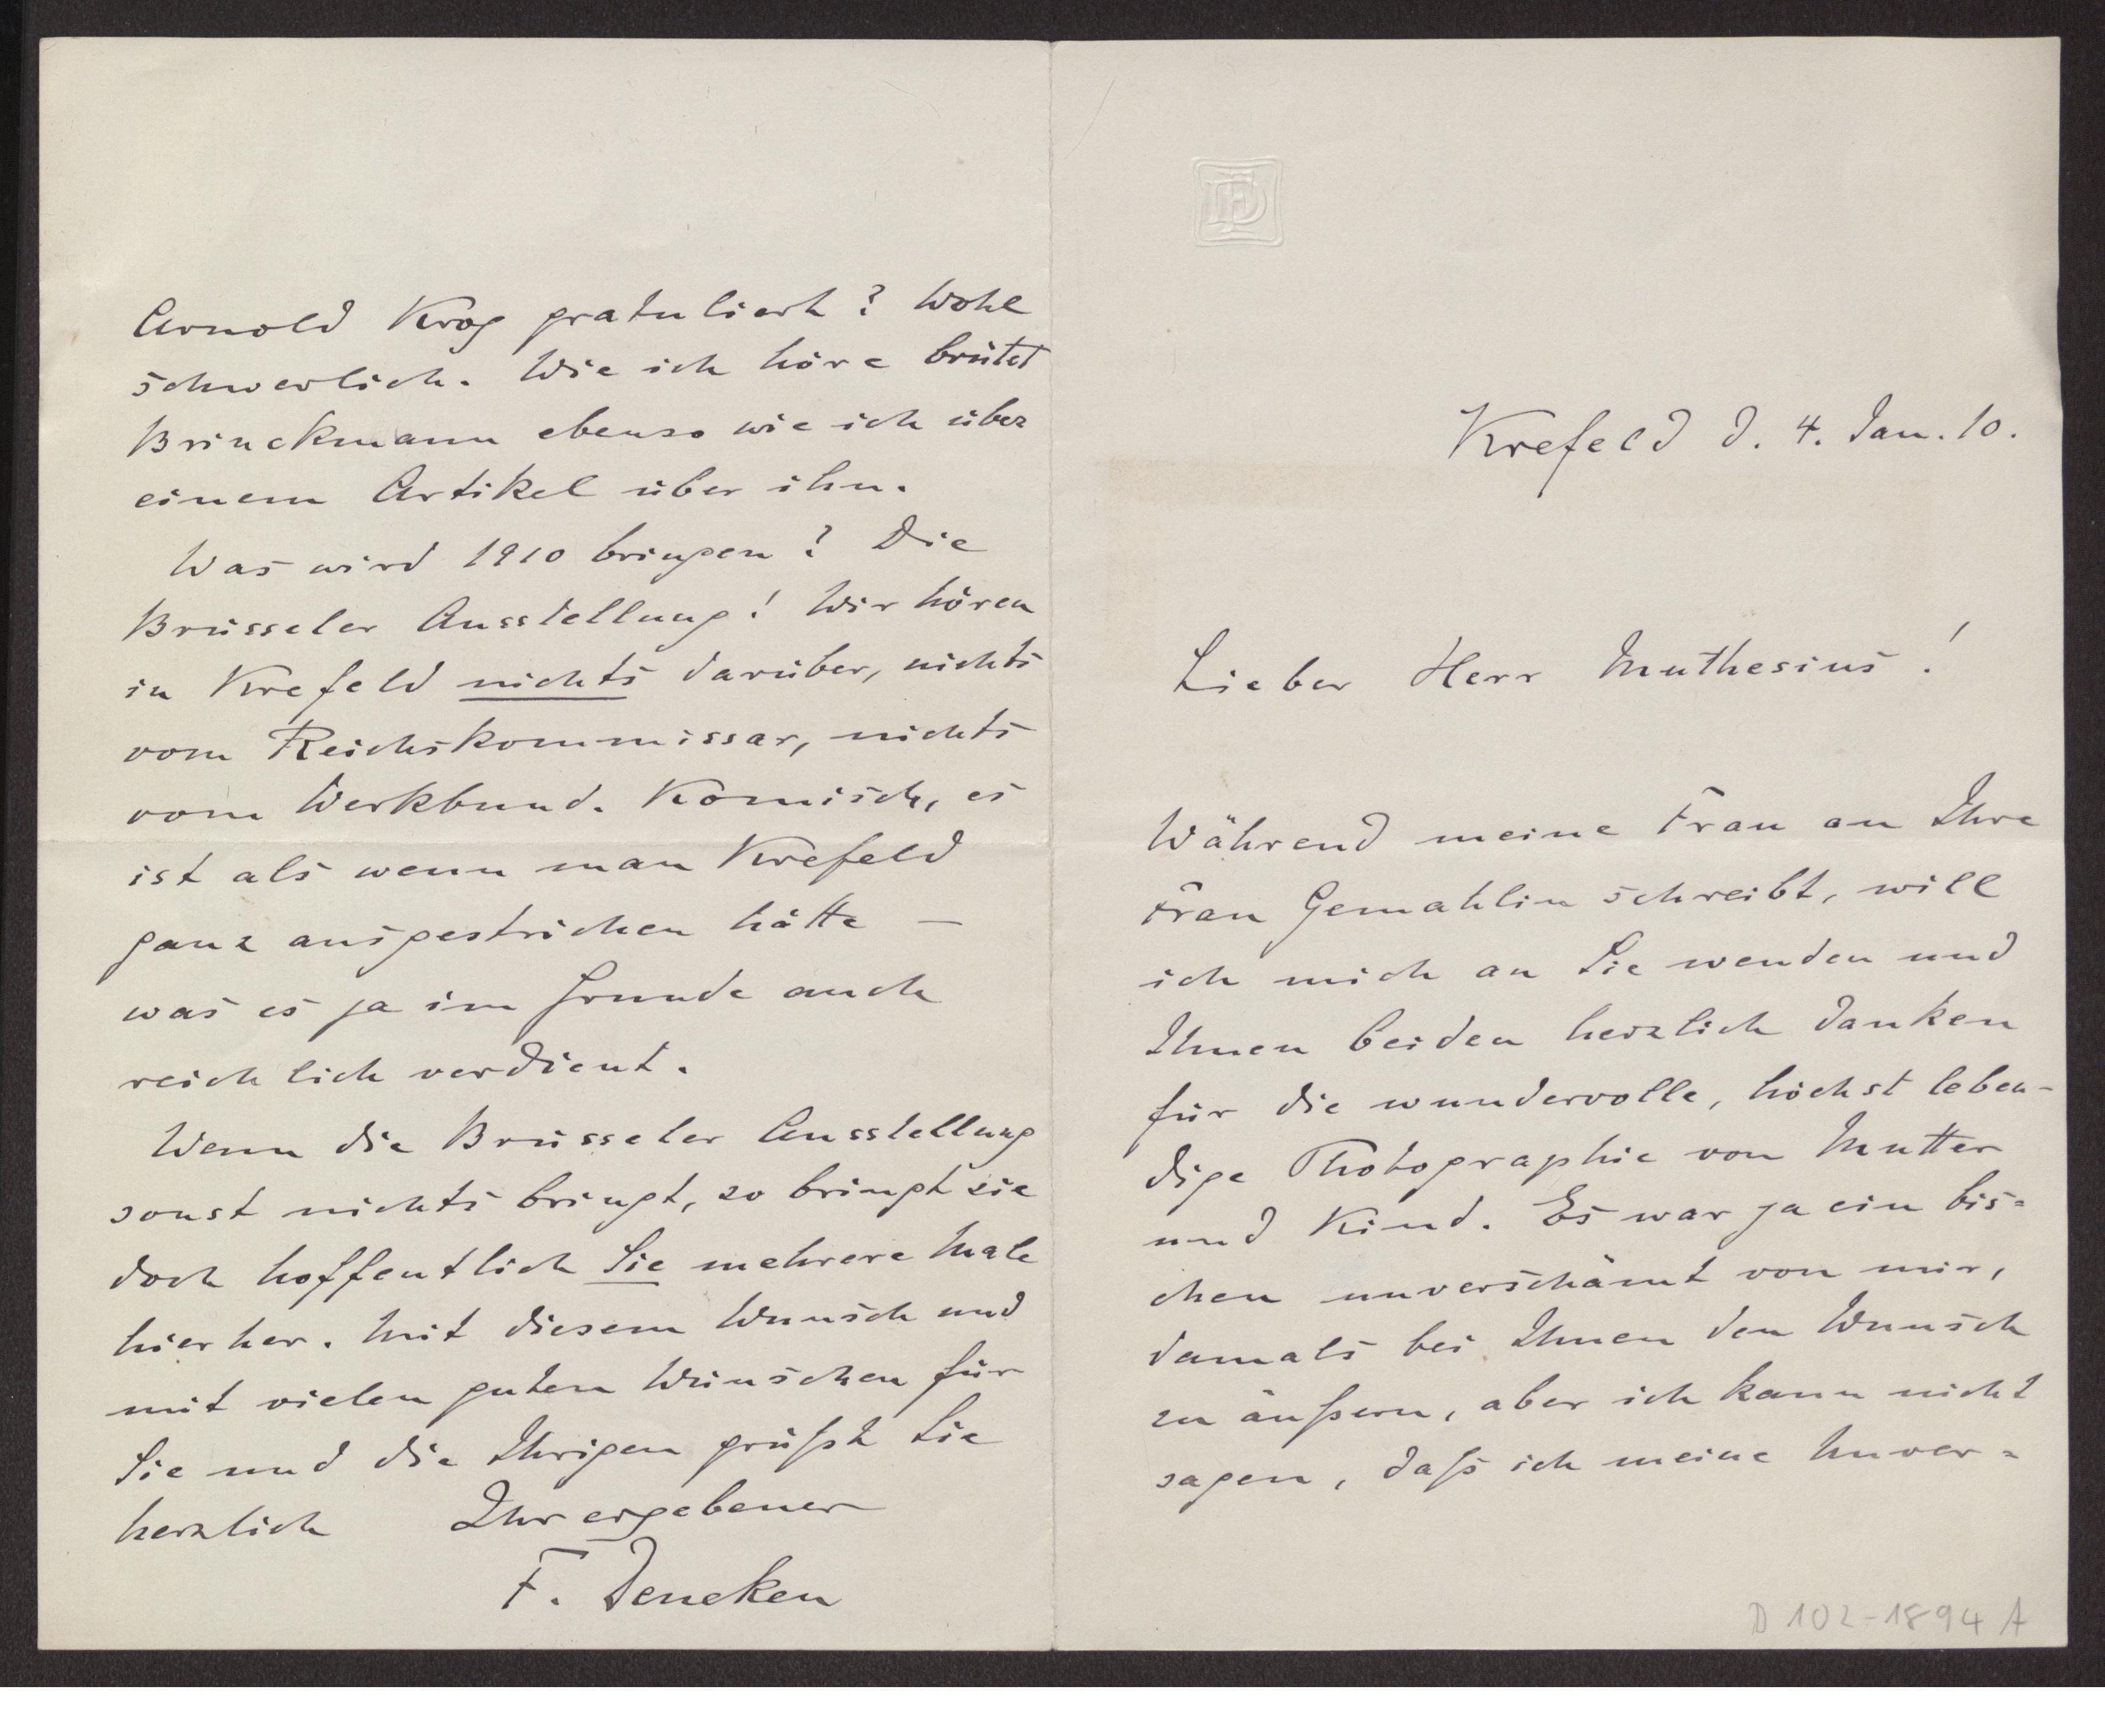 FD
Krefeld d. 4. Jan. 10.
Lieber Herr Muthesius!
Während meine Frau an Ihre
Frau Gemahlin schreibt, will
ich mich an Sie wenden und
Ihnen beiden herzlich danken
für die wundervolle, höchst leben-
dige Photographie von Mutter
und Kind. Es war ja ein bis=
chen unverschämt von mir,
damals bei Ihnen den Wunsch
zu äußern, aber ich kann nicht
sagen, daß ich meine Unver=
D 102-1894 A
Arnold Krog gratuliert? Wohl
schwerlich. Wie ich höre brütet
Brinckmann ebenso wie ich über
einem Artikel über ihn.
Was wird 1910 bringen? Die
Brüsseler Ausstellung! Wir hören
in Krefeld nichts darüber, nichts
vom Reichskommissar, nichts
vom Werkbund. Komisch, es
ist als wenn man Krefeld
ganz ausgestrichen hätte —
was es ja im Grunde auch
reichlich verdient.
Wenn die Brüsseler Ausstellung
sonst nichts bringt, so bringt sie
doch hoffentlich Sie mehrere Male
hierher. Mit diesem Wunsch und
mit vielen guten Wünschen für
Sie und die Ihrigen grüßt Sie
herzlich Ihr ergebener
F. Deneken